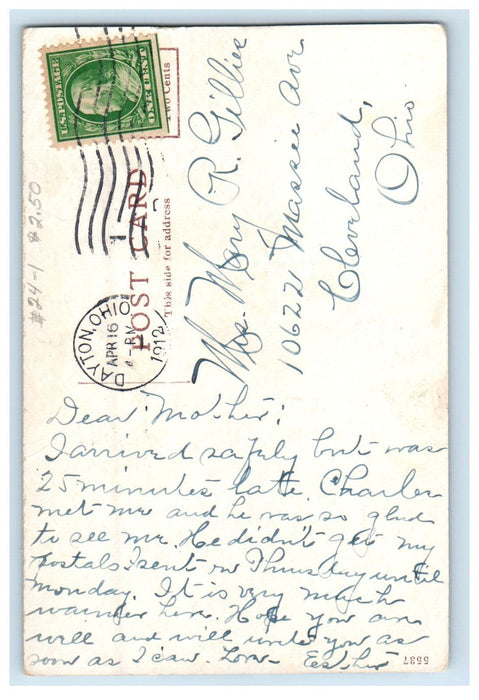 U.S. POSTAGE
ONE CENT
Two Cents
POST CARD
This side for address
DAYTON, OHIO
APR 16
-PM
1912
#24-1 $2.50
Mrs. Mary R. Gillie
10622 Massee Ave
Cleveland,
Ohio
Dear Mother:
I arrived safely but was
25 minutes late. Charles
met me and he was so glad
to see me. He didn't get my
postals I sent on Thursday until
Monday. It is very much
warmer here. Hope you are
well and will write you as
soon as I can. Love- Esther
5537